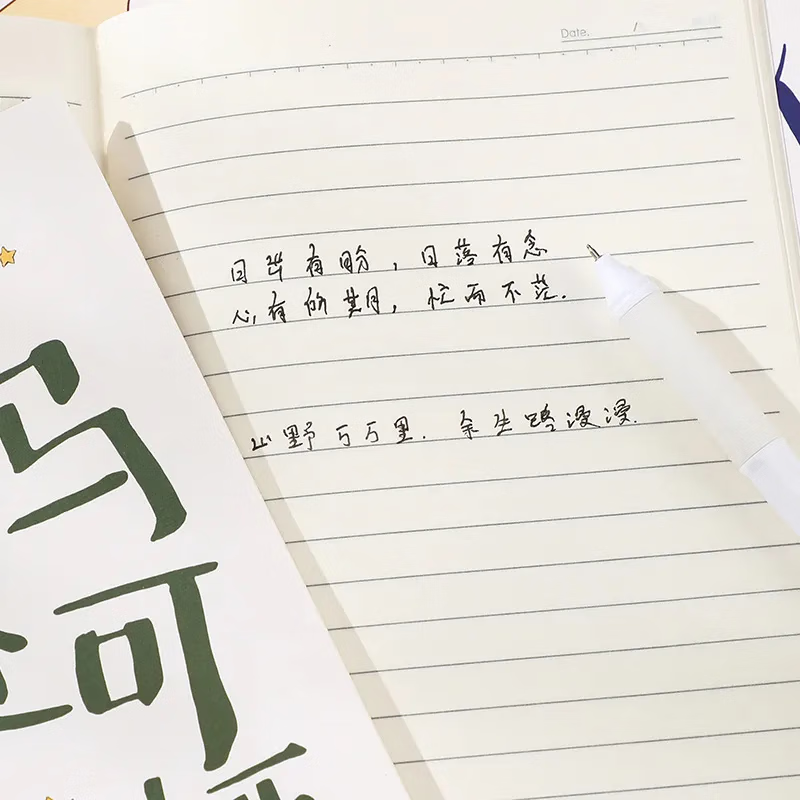 Date.            /
日出有盼，日落有念
心有所期，忙而不茫.
山野万万里.余生路漫漫.
可